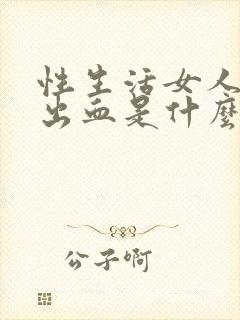 性生活女人
出血是什麼
公子啊